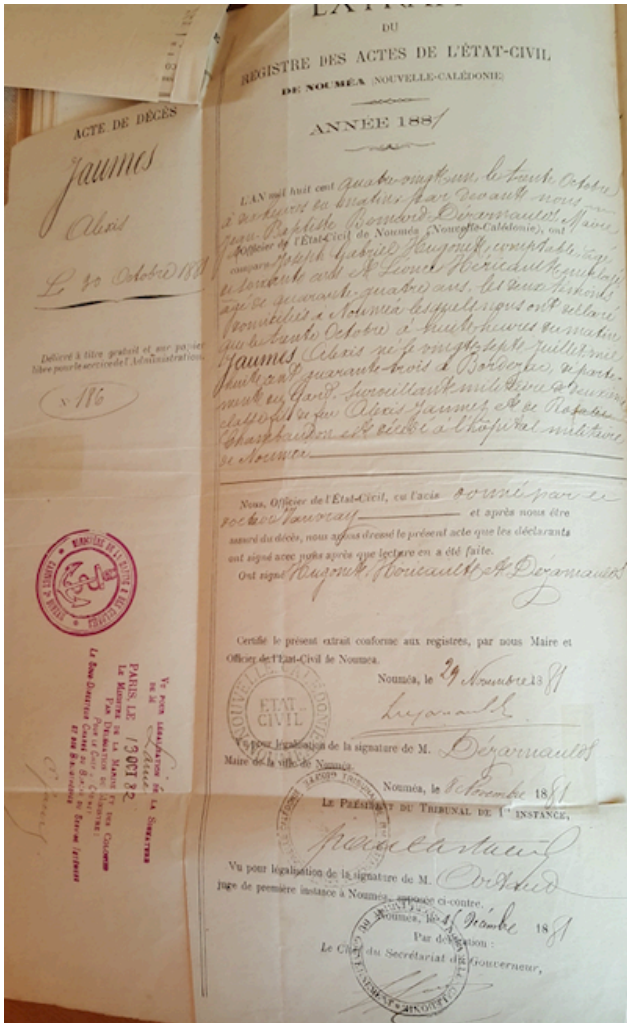 EXTRAIT
DU
REGISTRE DES ACTES DE L'ÉTAT-CIVIL
DE NOUMÉA (NOUVELLE-CALÉDONIE)
ANNÉE 1881
ACTE DE DÉCÈS
Jaumes
Alexis
Le 30 Octobre 1881
Délivré à titre gratuit et sur papier
libre pour le service de l'Administration.
N. 186
L'AN mil huit cent quatre vingt un le trente Octobre
à dix heures du matin, par devant nous
Jean Baptiste Bonnard Dézarnaulds Maire
Officier de l'État-Civil de Nouméa (Nouvelle-Calédonie), ont
comparu Joseph Gabriel Hugonet, comptable âgé
de soixante ans et Léonce Héricault employé
âgé de quarante quatre ans, les deux témoins
domiciliés à Nouméa lesquels nous ont déclaré
que le trente Octobre à heures du matin
Jaumes, Alexis né le vingt sept Juillet mil
huit cent quarante trois à Bordezac, départe-
ment du Gard, Surveillant militaire de deuxième
classe fils de feu Alexis Jaumes et de Rosalie
Chambaudon est décédé à l'hôpital militaire
de Nouméa
Nous, Officier de l'État-Civil, vu l'avis donné par le
docteur et après nous être
assuré du décès, nous avons dressé le présent acte que les déclarants
ont signé avec nous après que lecture en a été faite.
Ont signé Hugonet, Héricault et Dézarnaulds
Certifié le présent extrait conforme aux registres, par nous Maire et
Officier de l'État-Civil de Nouméa.
Nouméa, le 29 Novembre 1881
Dézarnaulds
NOUVELLE CALÉDONIE
ETAT
CIVIL
Vu pour légalisation de la signature de M. Dézarnaulds
Maire de la ville de Nouméa.
Nouméa, le Novembre 1881
LE PRÉSIDENT DU TRIBUNAL DE 1re INSTANCE,
Vu pour légalisation de la signature de M.
juge de première instance à Nouméa, apposée ci-contre.
Nouméa, le Décembre 1881
Par délégation :
Le Chef du Secrétariat du Gouverneur,
MINISTÈRE DE LA MARINE & DES COLONIES
VU POUR LÉGALISATION DE LA SIGNATURE
DE M.
PARIS, LE 13 OCT 82
LE MINISTRE DE LA MARINE ET DES COLONIES
PAR DÉLÉGATION DU MINISTRE:
LE SOUS-DIRECTEUR CHARGÉ DU BUREAU DU SERVICE INTÉRIEUR
ET DES BIBLIOTHÈQUES